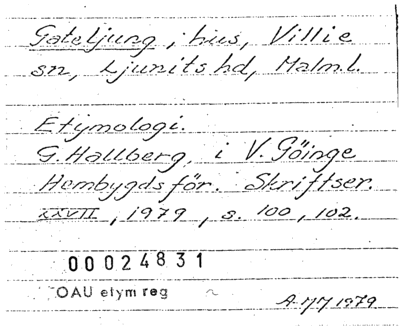 Gateljung, hus, Villie
sn, Ljunits hd, Malm.l.
Etymologi.
G. Hallberg, i V. Göinge
Hembygdsför. Skriftser.
XXVII, 1979, s. 100, 102.
00024831
OAU etym reg
1979